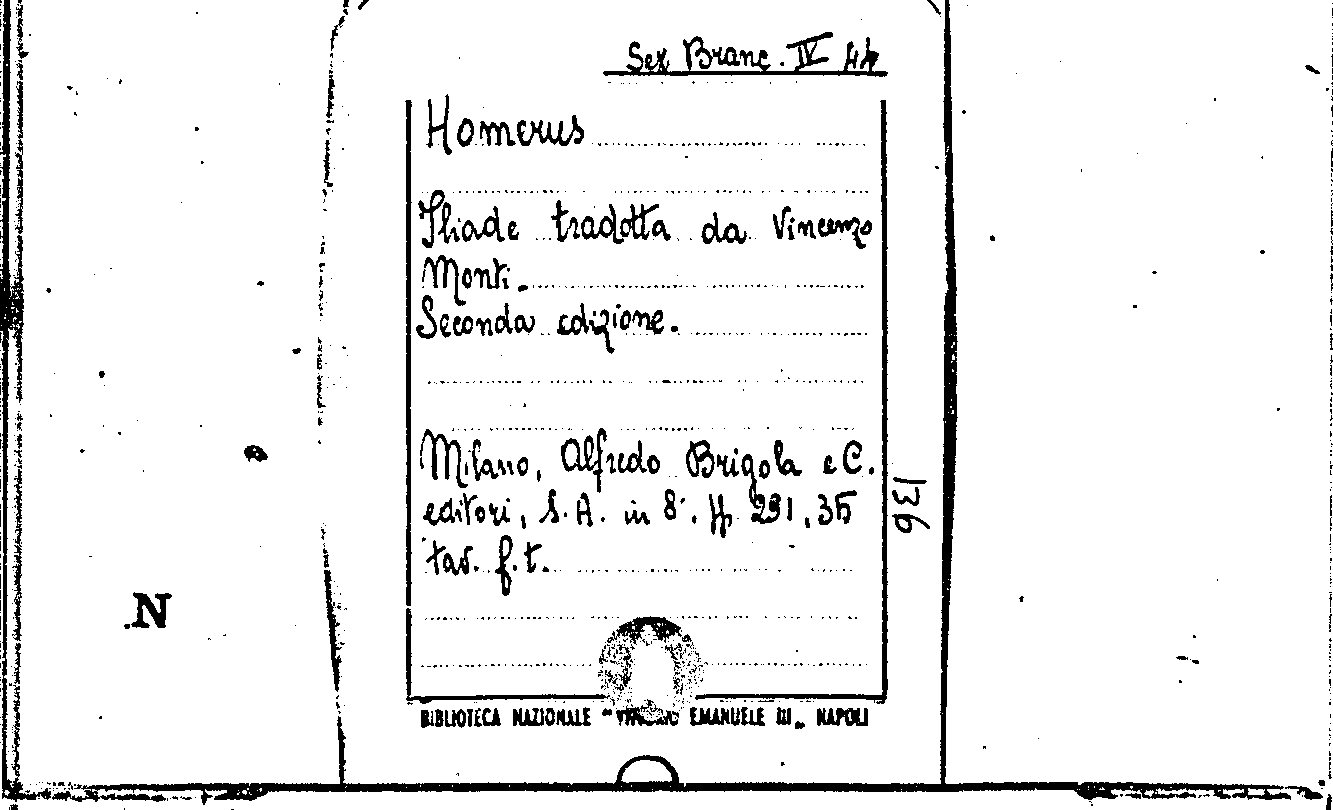 Sez Branc. IV 44
Homerus
Iliade tradotta da Vincenzo
Monti.
Seconda edizione.
Milano, Alfredo Brigola e C.
editori, S.A. in 8°. pp 291, 35
tav. f.t.
136
N
BIBLIOTECA NAZIONALE "VITTORIO EMANUELE III„ NAPOLI